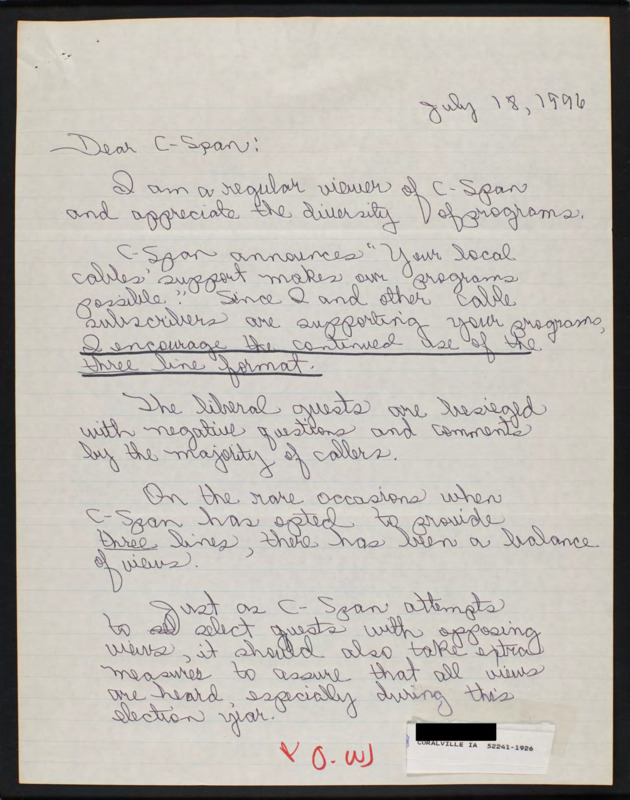 July 18, 1996
Dear C-Span:
I am a regular viewer of C-Span
and appreciate the diversity of programs.
C-Span announces "Your local
cables' support makes our programs
possible." Since I and other cable
subscribers are supporting your programs,
I encourage the continued use of the
three line format.
The liberal guests are besieged
with negative questions and comments
by the majority of callers.
On the rare occasions when
C-Span has opted to provide
three lines, there has been a balance
of views.
Just as C-Span attempts
to select guests with opposing
views, it should also take extra
measures to assure that all views
are heard, especially during this
election year.
CORALVILLE IA 52241-1926